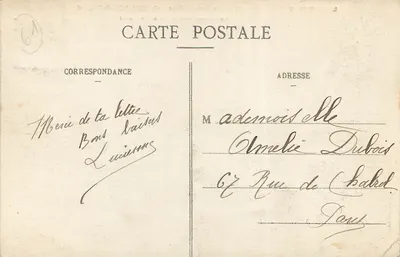 CARTE POSTALE
CORRESPONDANCE
Merci de ta lettre
Bons baisers
ADRESSE
Mademoiselle
Amelie Dubois
67 Rue de Chabrol
Paris